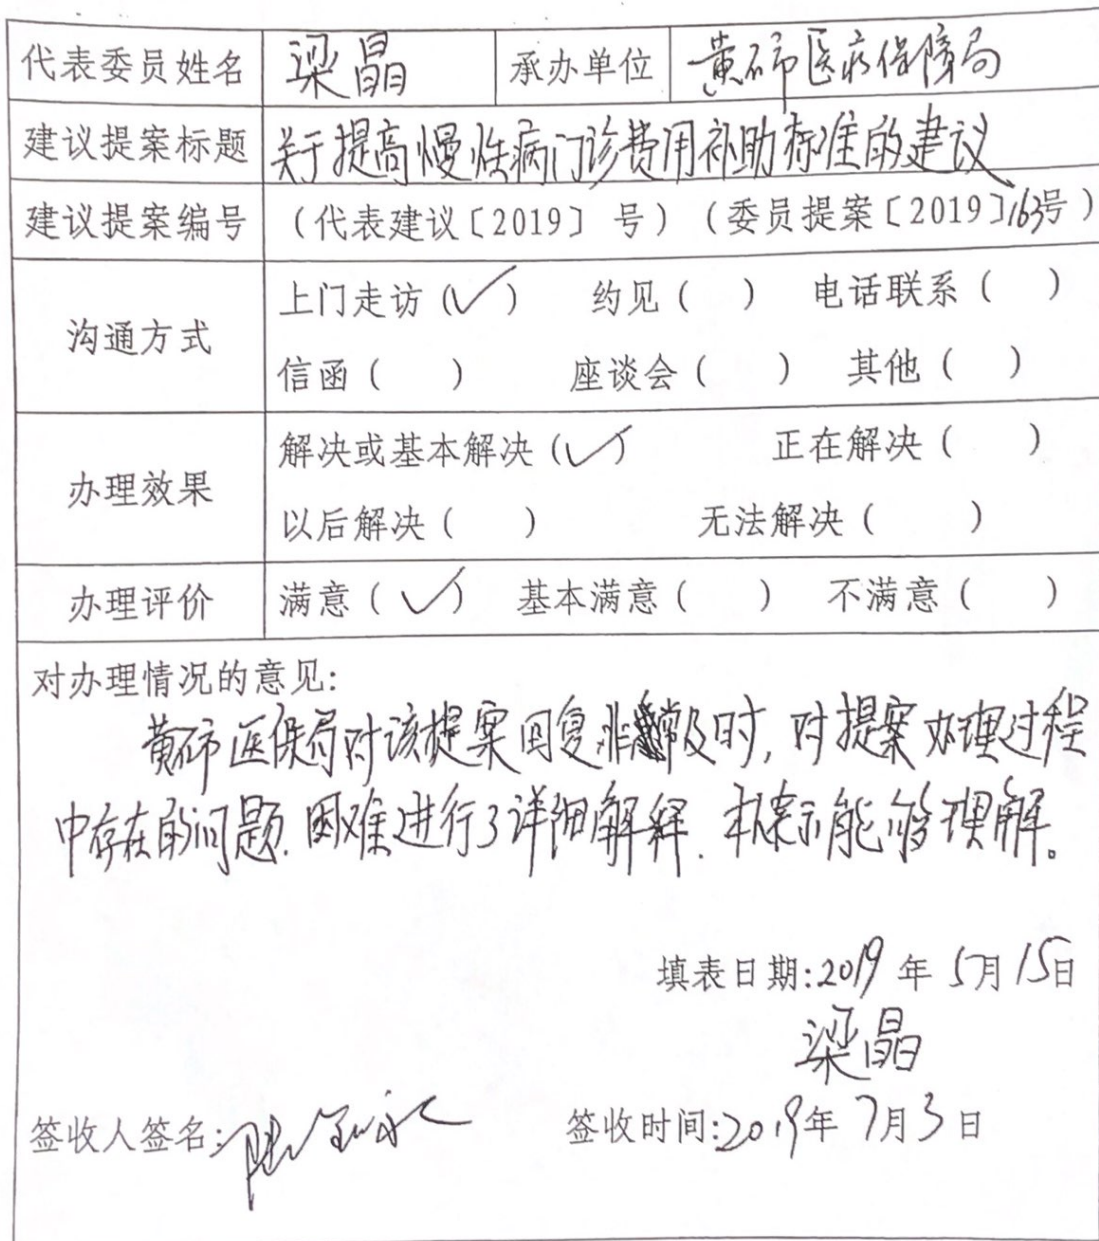 代表委员姓名 梁晶 承办单位 黄石市医疗保障局
建议提案标题 关于提高慢性病门诊费用补助标准的建议
建议提案编号 (代表建议〔2019〕 号) (委员提案〔2019〕163号)
沟通方式
上门走访(✓) 约见( ) 电话联系( )
信函( ) 座谈会( ) 其他( )
办理效果
解决或基本解决(✓) 正在解决( )
以后解决( ) 无法解决( )
办理评价 满意(✓) 基本满意( ) 不满意( )
对办理情况的意见:
黄石市医保局对该提案回复非常及时,对提案办理过程
中存在的问题、困难进行了详细解释.本人表示能够理解。
填表日期:2019年5月15日
梁晶
签收人签名: 签收时间:2019年7月3日